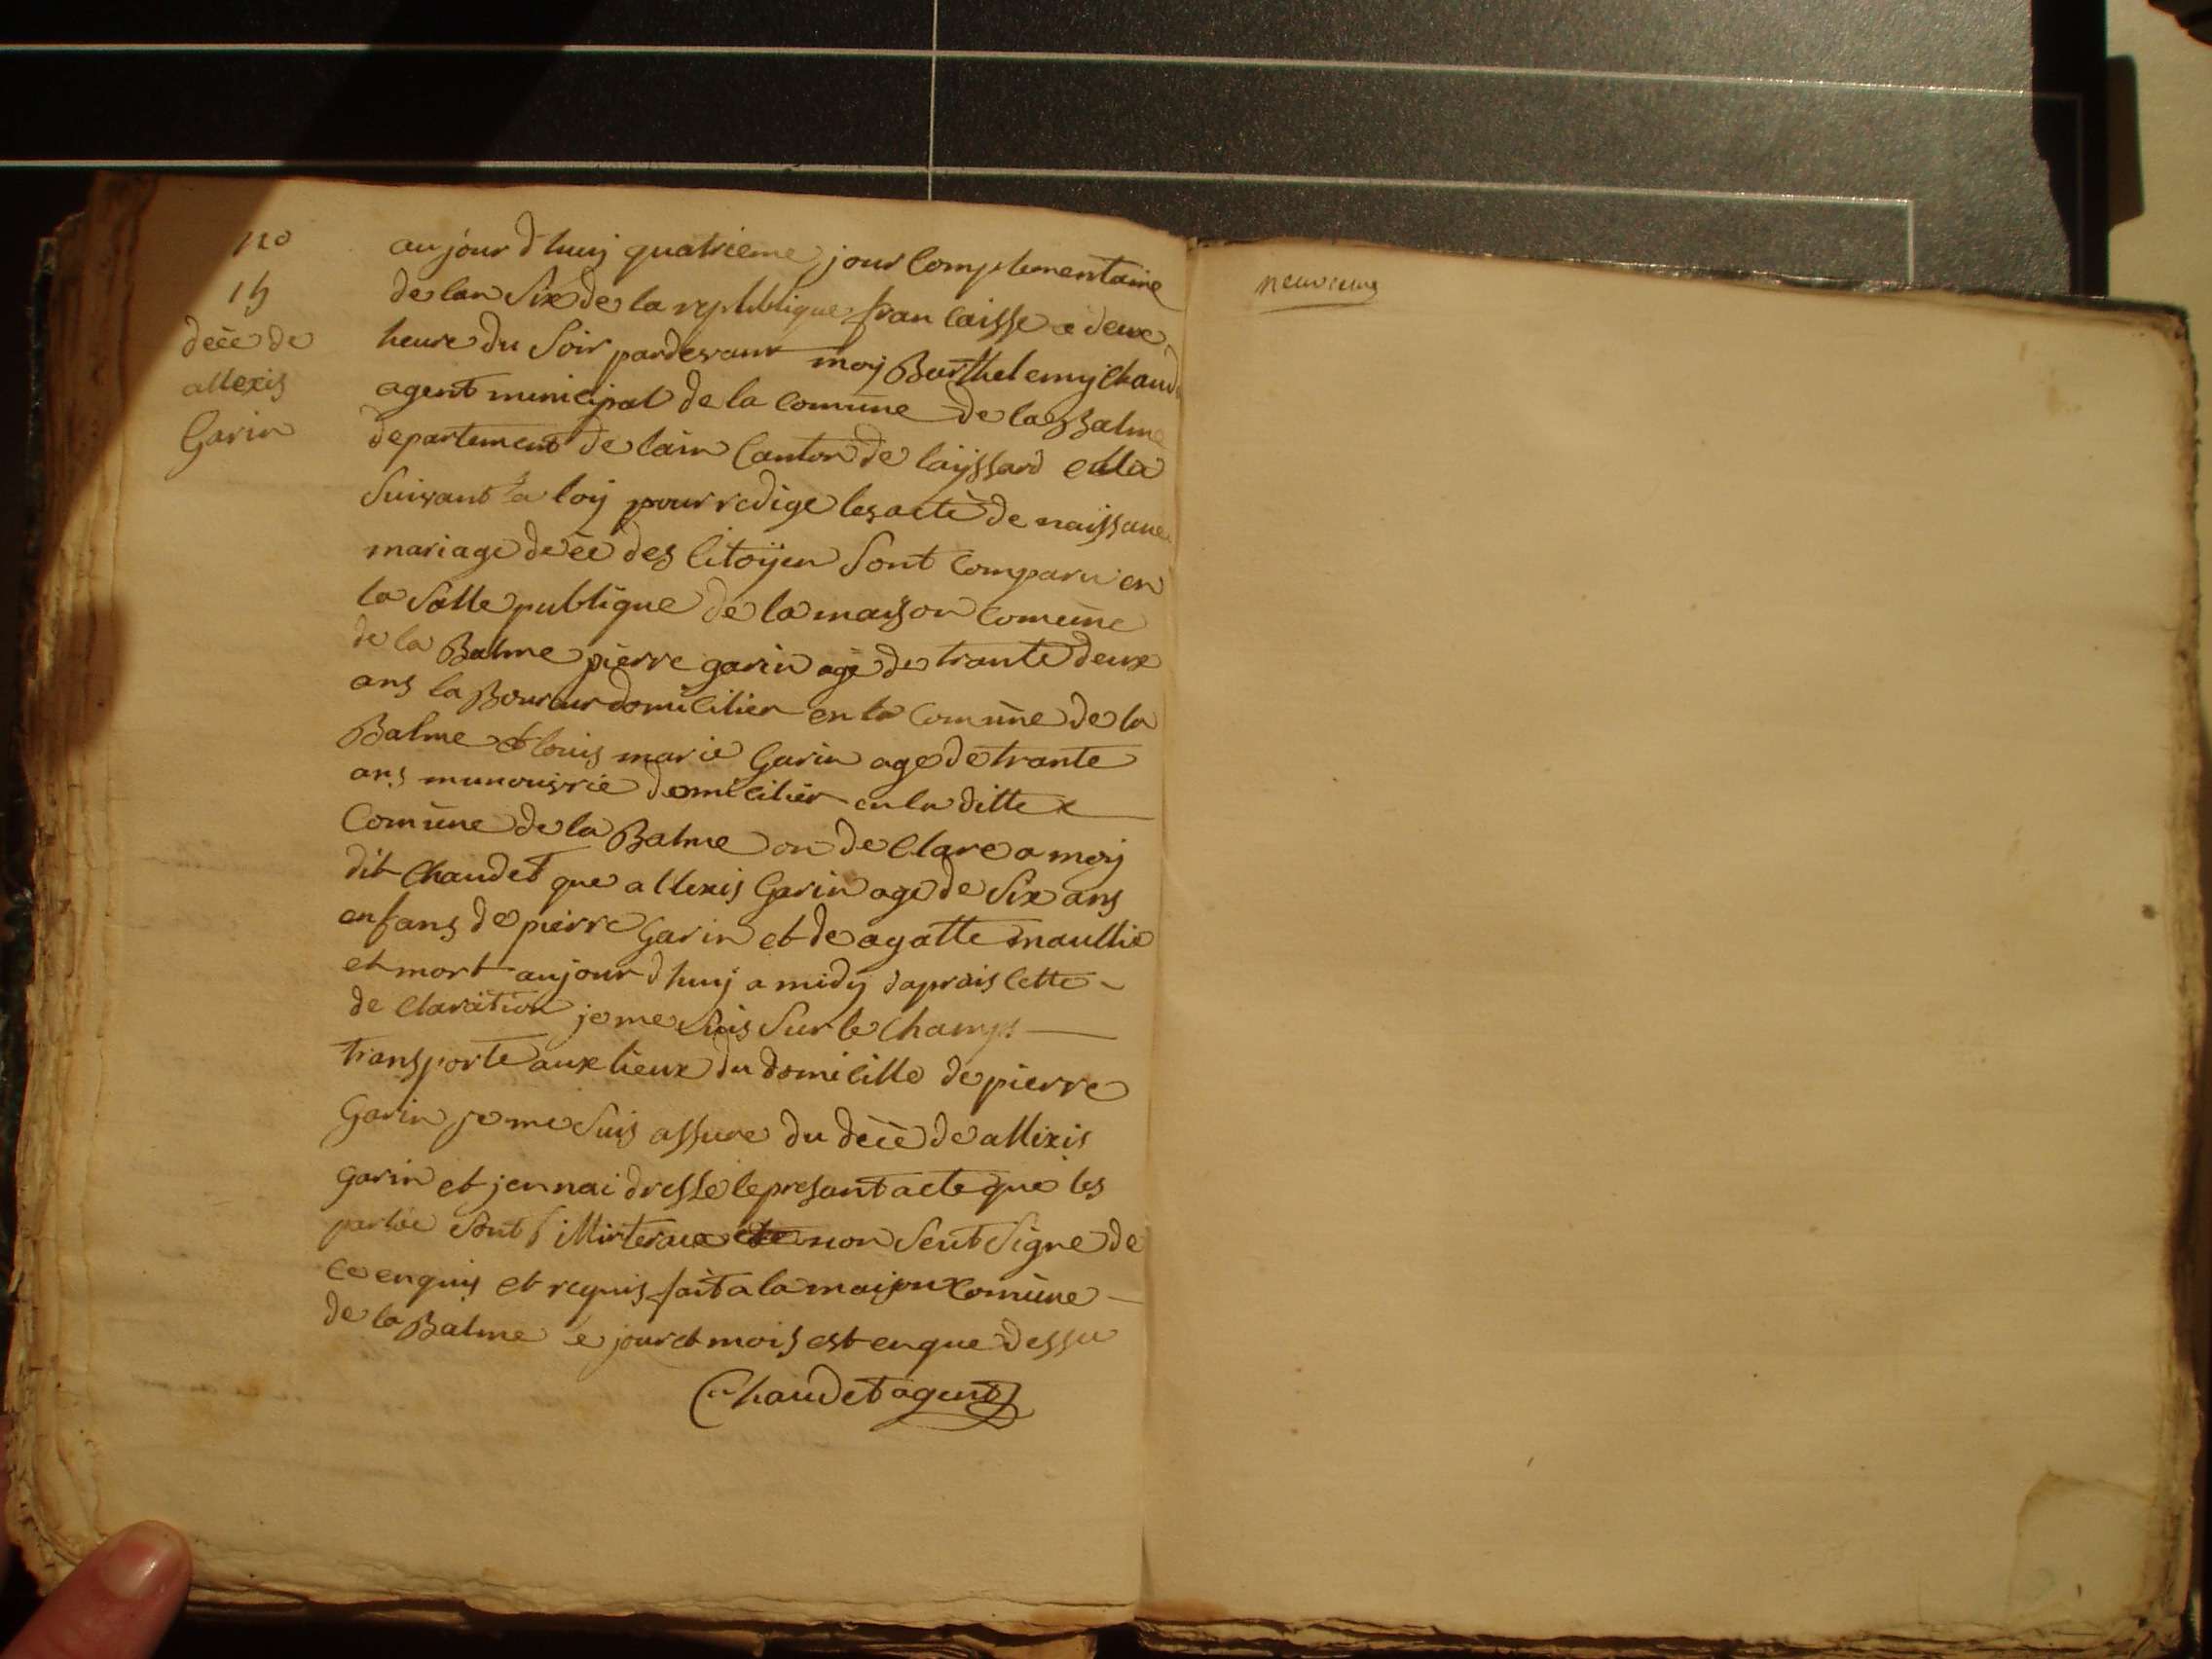 no
15
décè de
allexis
Garin
aujour dhuij quatrieme jour Complementaire
de lan Six de la republique francaisse a deux
heure du Soir pardevant moy Barthelemy Chaud
agent municipal de la Comune de la Balme
departement de lain Canton de
Suivant la loy pour redige les acte de naissance
mariage décè des Citoijen Sont Comparu en
la Salle publique de la maison Comune
de la Balme pierre garin agé de trante deux
ans laBoureur domicilier en la Comune de la
Balme & louis marie Garin age de trante
ans manouvrie domicilier en la ditte
Comune de la Balme on de Clare a moy
dit Chaudet que allexis Garin age de Six ans
enfans de pierre Garin et de agatte maullie
et mort aujour dhuij a midy daprais Cette
de Claration je me Suis Sur le Champs
transporte aux lieux du domicille de pierre
Garin je me Suis assure du décè de allixis
garin et jennai dressé le presant acte que les
partie Sont non Seut Signe de
ce enquis et requis fait a la maison Comune
de la Balme le jour et mois est en que dessu
Chaudet agent
neuvieme